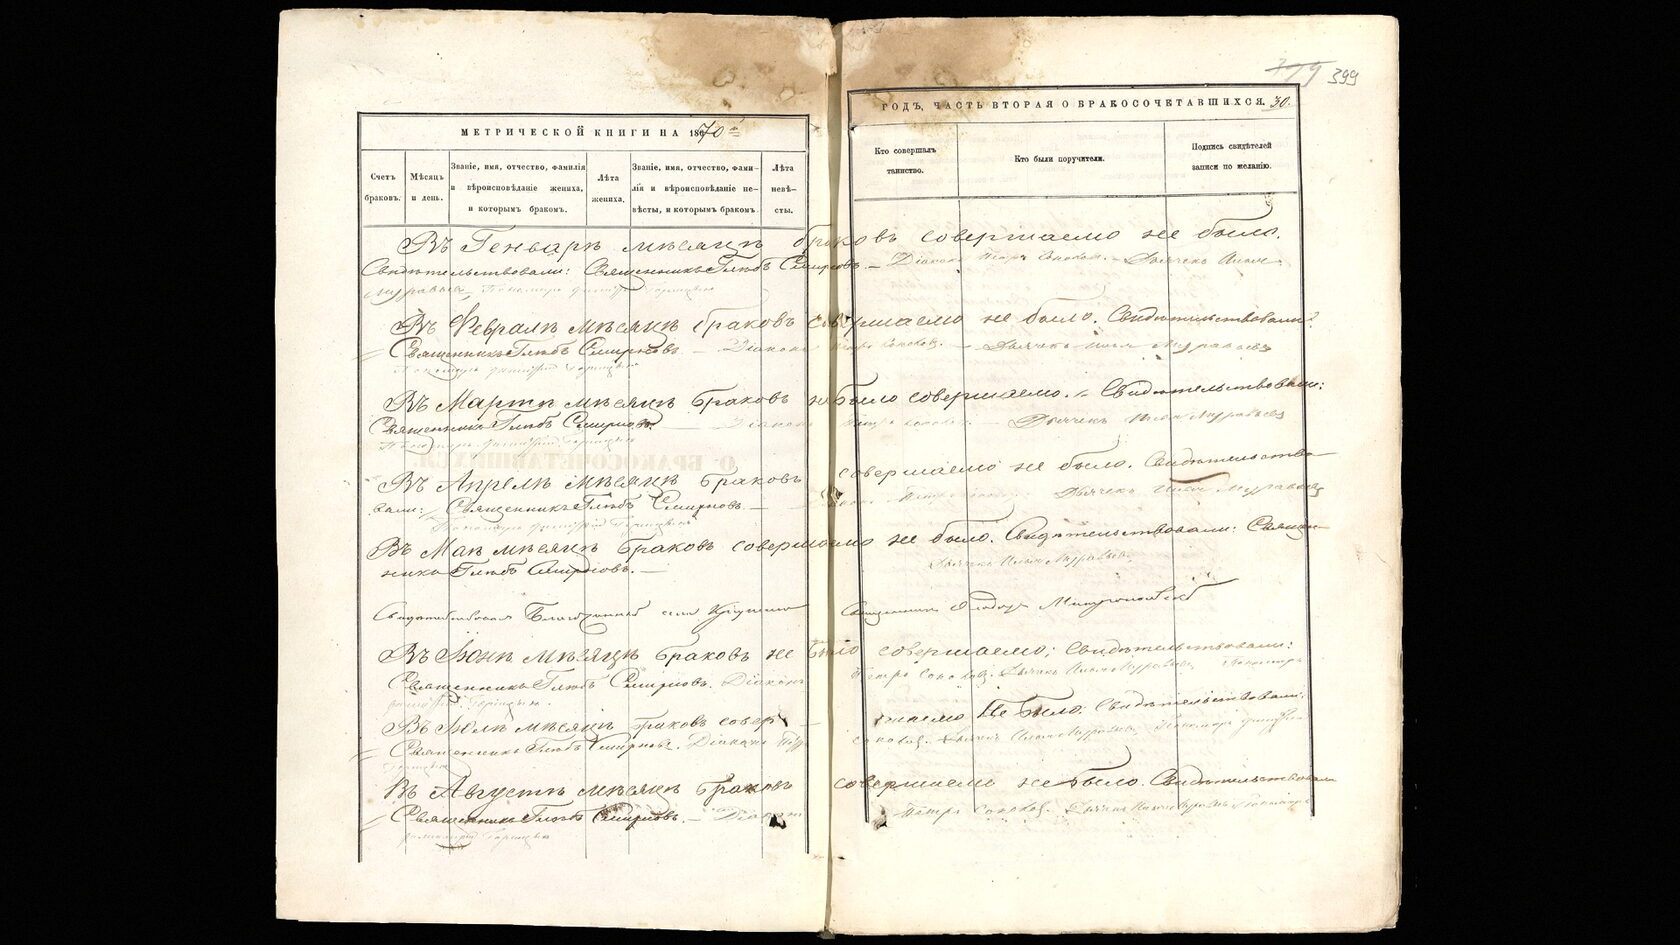 399 399
МЕТРИЧЕСКОЙ КНИГИ НА 1870
ГОДЪ, ЧАСТЬ ВТОРАЯ О БРАКОСОЧЕТАВШИХСЯ. 30.
Счетъ браковъ.
Мѣсяцъ и день.
Званіе, имя, отчество, фамилія и вѣроисповѣданіе жениха, и которымъ бракомъ.
Лѣта жениха.
Званіе, имя, отчество, фамилія и вѣроисповѣданіе невѣсты, и которымъ бракомъ
Лѣта невѣсты.
Кто совершалъ таинство.
Кто были поручители.
Подпись свидѣтелей записи по желанію.
Въ Генварѣ мѣсяцѣ браковъ совершаемо не было.
Свидѣтельствовали: Священникъ Глѣбъ Смирновъ. — Діаконъ Петръ Соколовъ. — Дьячекъ Илья
Муравьевъ Пономарь Димитрій
Въ Февралѣ мѣсяцѣ браковъ совершаемо не было. Свидѣтельствовали:
Священникъ Глѣбъ Смирновъ — Діаконъ Петръ Соколовъ. — Дьячекъ Илья Муравьевъ
Пономарь Димитрій
Въ Мартѣ мѣсяцѣ браковъ не было совершаемо. — Свидѣтельствовали:
Священникъ Глѣбъ Смирновъ. — Діаконъ Петръ Соколовъ. — Дьячекъ Илья Муравьевъ
Пономарь Димитрій
Въ Апрелѣ мѣсяцѣ браковъ совершаемо не было. Свидѣтельство-
вали: Священникъ Глѣбъ Смирновъ. — Петръ Соколовъ Дьячекъ Илья Муравьевъ
Пономарь Димитрій
Въ Маѣ мѣсяцѣ браковъ совершаемо не было. Свидѣтельствовали: Священ-
никъ Глѣбъ Смирновъ. — Дьячекъ Илья Муравьевъ.
Благочинный села Священникъ
Въ Іюнѣ мѣсяцѣ браковъ не было совершаемо; Свидѣтельствовали:
Священникъ Глѣбъ Смирновъ. Діаконъ Петръ Соколовъ. Дьячекъ Илья Муравьевъ Пономарь
Димитрій
Въ Іюлѣ мѣсяцѣ браковъ совершаемо не было. Свидѣтельствовали:
Священникъ Глѣбъ Смирновъ. Діаконъ Петръ Соколовъ. Дьячекъ Илья Муравьевъ Пономарь Димитрій
Въ Августѣ мѣсяцѣ браковъ совершаемо не было. Свидѣтельствовали
Священникъ Глѣбъ Смирновъ. — Діаконъ Петръ Соколовъ. Дьячекъ Илья Муравьевъ Пономарь
Димитрій